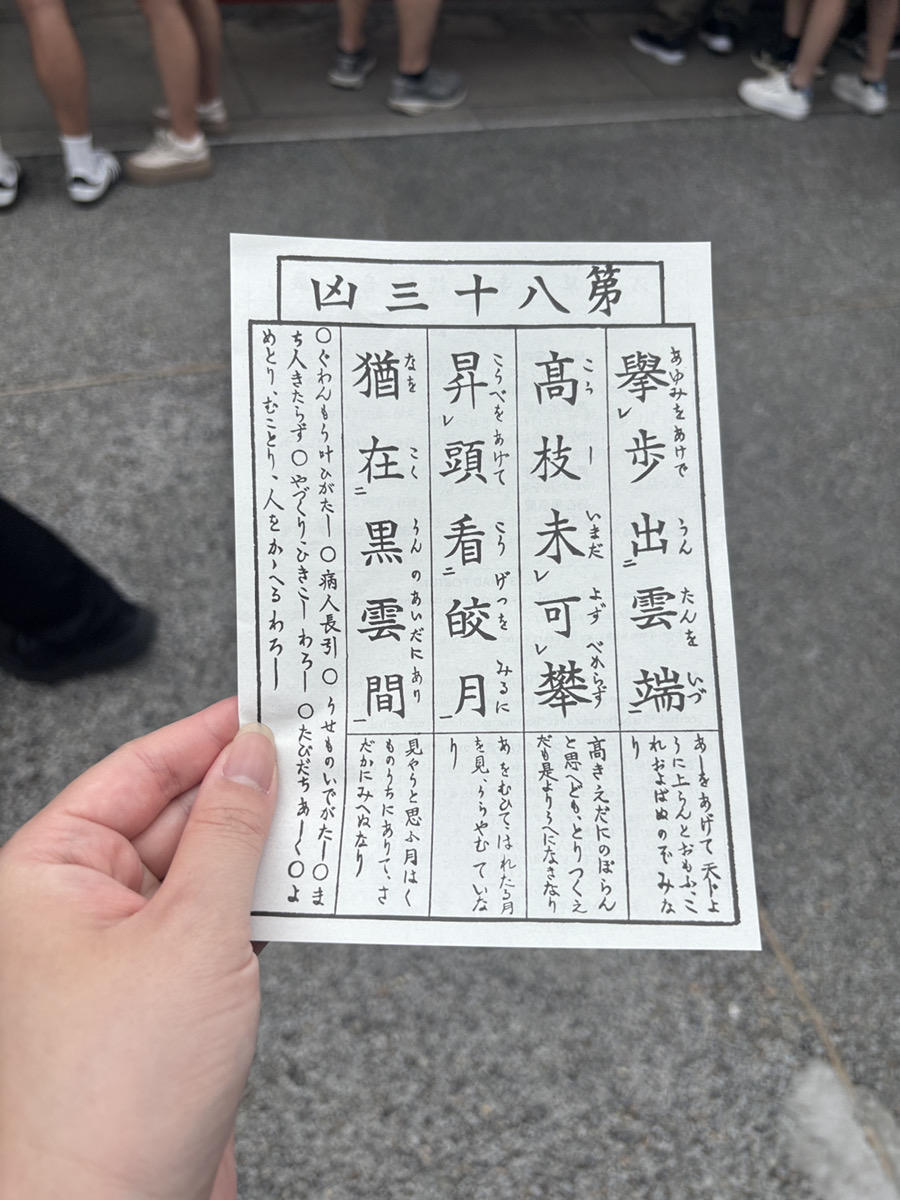 第八十三凶
あゆみをあけで うん たんを いづ
擧レ歩出二雲端一
あしをあげて天上よ
うに上らんとおもふ、こ
れおよばぬのぞみな
り
こう し いまだ よず べからず
高枝未レ可レ攀
高きえだにのぼらん
と思へども、とりつくえ
だも是よりうへになきなり
こうべを あげて こう げつを みるに
昇レ頭看二皎月一
あをむひて、はれたる月
を見、うらやむていな
り
なを こく うん のあいだにあり
猶在二黒雲間一
見やうと思ふ月はく
ものうちにありて、さ
だかにみへぬなり
〇ぐわんもう叶ひがたし 〇病人長引 〇うせものいでがたし〇ま
ち人きたらず〇やづくりひきこしわろし 〇たびだちあしく〇よ
めとり、むことり、人をかゝへるわろし